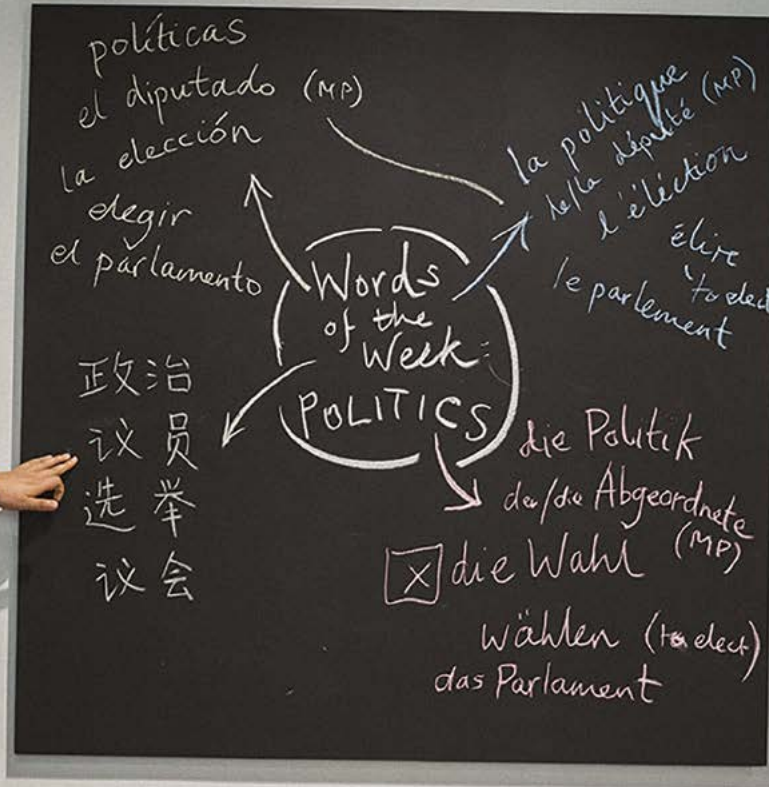 políticas
el diputado (MP)
la elección
elegir
el parlamento
la politique
le/la député (MP)
l'éléction
élire
'to elect
le parlement
Words
of the
Week
POLITICS
政治
议员
选举
议会
die Politik
der/die Abgeordnete
(MP)
die Wahl
wählen (to elect)
das Parlament